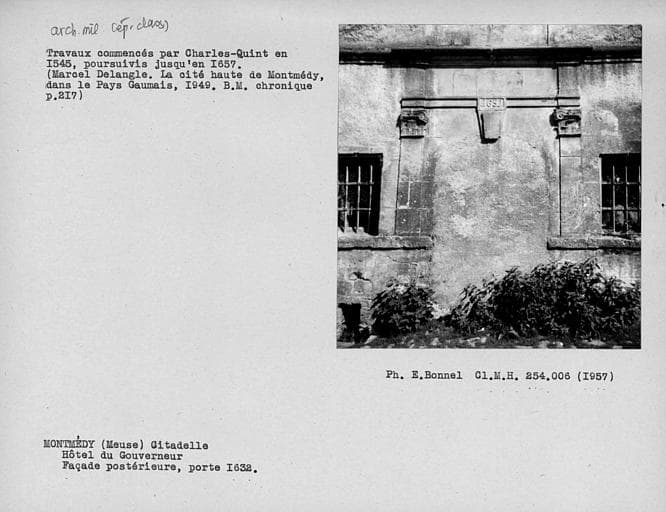 arch. mil (cép. class)
Travaux commencés par Charles-Quint en
I545, poursuivis jusqu'en I657.
(Marcel Delangle. La cité haute de Montmédy,
dans le Pays Gaumais, I949. B.M. chronique
p.2I7)
Ph. E.Bonnel Cl.M.H. 254.006 (I957)
MONTMÉDY (Meuse) Citadelle
Hôtel du Gouverneur
Façade postérieure, porte I632.